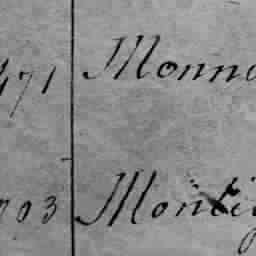 471 Monn
703 Montig